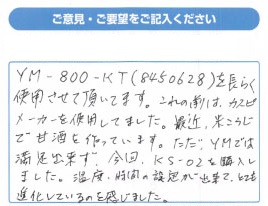 ご意見・ご要望をご記入ください
YM-800-KT(8450628)を長らく
使用させて頂いてます。これの前は、カスピ
メーカーを使用してました。最近、米こうじ
で甘酒を作っています。ただ、YMでは
満足出来ず、今回、KS-02を購入し
ました。温度、時間の設定が出来て、とても
進化しているのを感じました。